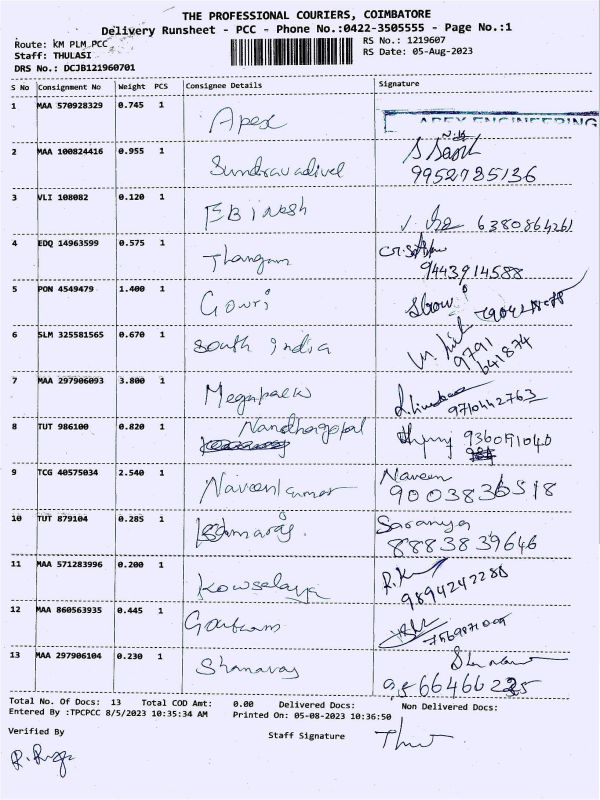 THE PROFESSIONAL COURIERS, COIMBATORE
Delivery Runsheet - PCC - Phone No.:0422-3505555 - Page No.:1
Route: KM PLM_PCC
RS No.: 1219607
Staff: THULASI
RS Date: 05-Aug-2023
DRS No.: DCJB121960701
S No Consignment No Weight PCS Consignee Details Signature
1 MAA 570928329 0.745 1 Apex APEX ENGINEERING
2 MAA 100824416 0.955 1 Sundravadivel
9952785136
3 VLI 108082 0.120 1 EBinesh 6380864261
4 EDQ 14963599 0.575 1 Thangam
9443914588
5 PON 4549479 1.400 1 Gowri
6 SLM 325581565 0.670 1 South India
9791
641874
7 MAA 297906093 3.800 1 Megapack 9710442763
8 TUT 986100 0.820 1 Nandhagopal
9 TCG 40575034 2.540 1 Naveenkumar Naveen
9003836518
10 TUT 879104 0.285 1 Saranya
8883839646
11 MAA 571283996 0.200 1 Kowsalaya R.K
9894242286
12 MAA 860563935 0.445 1 Goutham
13 MAA 297906104 0.230 1 Shanavas
Total No. Of Docs: 13 Total COD Amt: 0.00 Delivered Docs: Non Delivered Docs:
Entered By :TPCPCC 8/5/2023 10:35:34 AM Printed On: 05-08-2023 10:36:50
Verified By Staff Signature